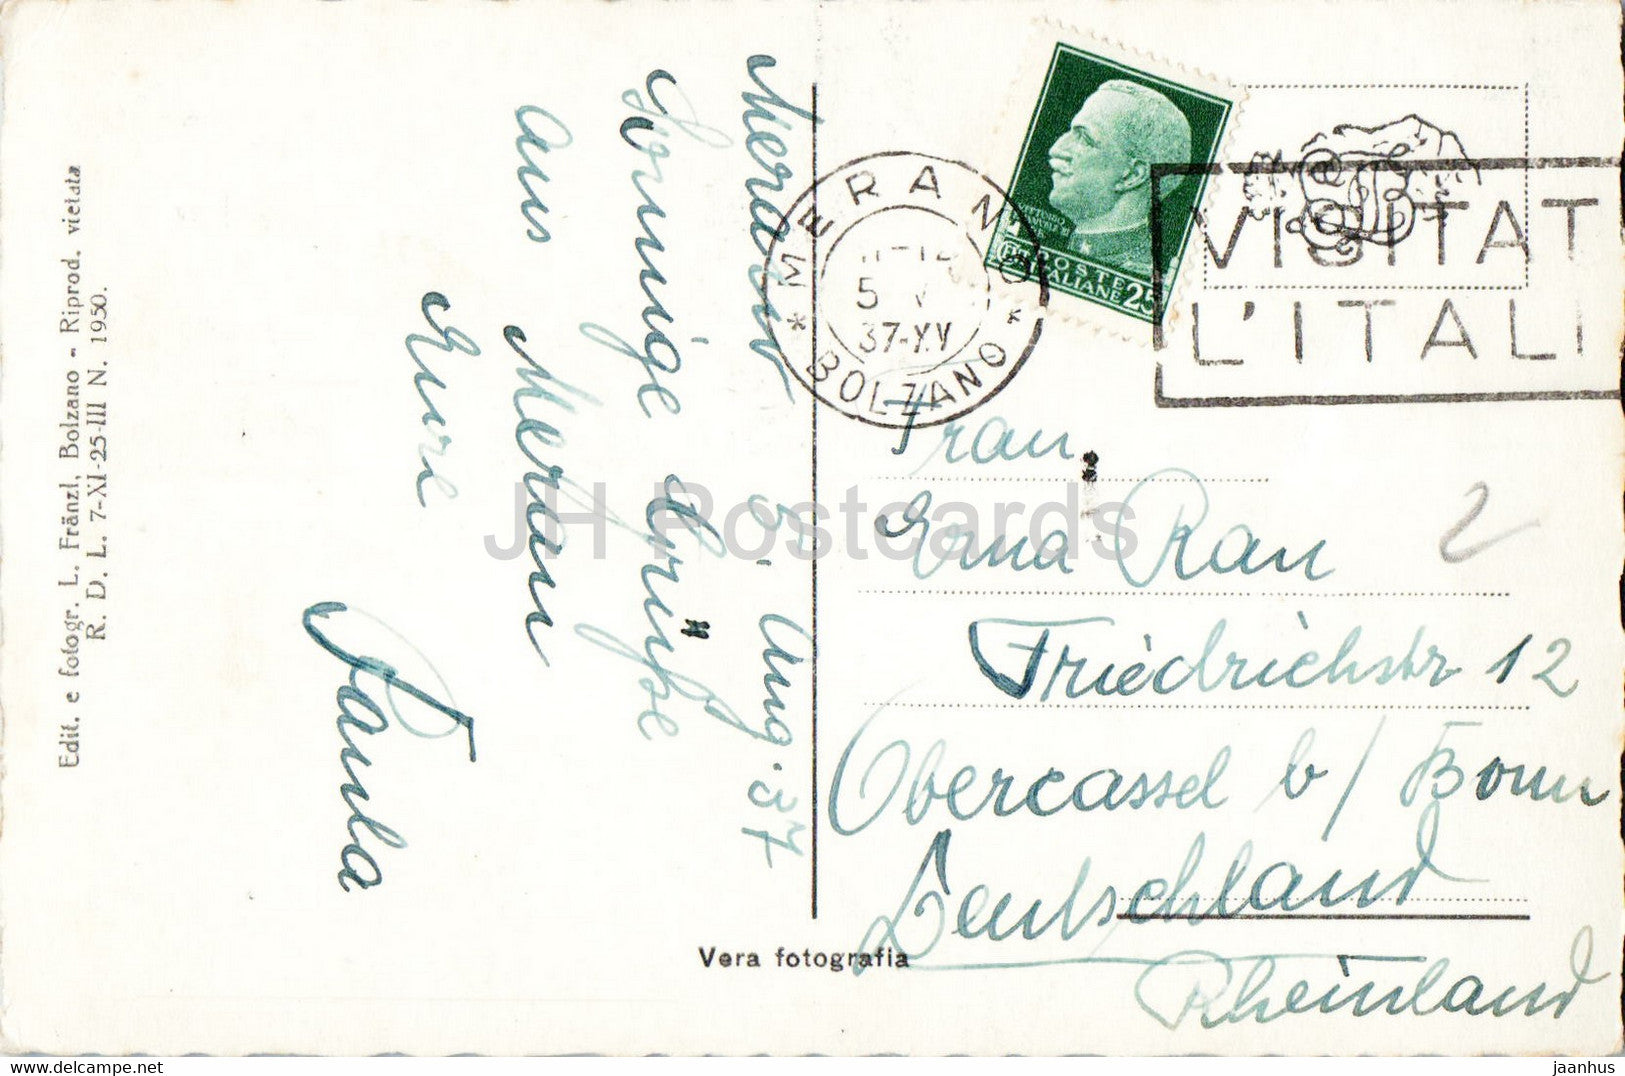 Edit. e fotogr. L. Fränzl, Bolzano - Riprod. vietata
R. D. L. 7-XI-25-III N. 1950.
Merano 5. Aug. 37
Sonnige Grüße
aus Meran
Eure
Paula
Vera fotografia
* MERANO * BOLZANO
5
37-XV
POSTE
ITALIANE 25
VISITAT
L'ITALI
Frau
Erna Rau
Friedrichstr 12
Obercassel b/ Bonn
Deutschland
Rheinland
2
JH Postcards
jaanhus
delcampe.net